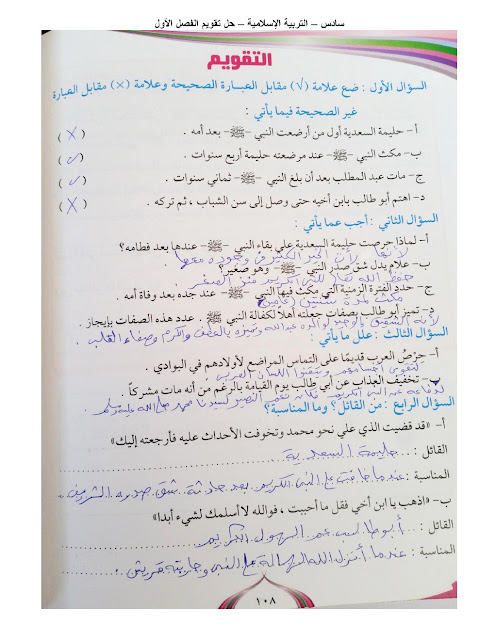 سادس – التربية الإسلامية – حل تقويم الفصل الأول
التقويم
السؤال الأول : ضع علامة (√) مقابل العبارة الصحيحة وعلامة (×) مقابل العبارة
غير الصحيحة فيما يأتي :
أ- حليمة السعدية أول من أرضعت النبي -ﷺ- بعد أمه . (X)
ب- مكث النبي -ﷺ- عند مرضعته حليمة أربع سنوات . (✓)
ج- مات عبد المطلب بعد أن بلغ النبي -ﷺ- ثماني سنوات . (✓)
د- اهتم أبو طالب بابن أخيه حتى وصل إلى سن الشباب ، ثم تركه . (X)
السؤال الثاني : أجب عما يأتي :
أ- لماذا حرصت حليمة السعدية على بقاء النبي -ﷺ- عندها بعد فطامه؟
لأنها رأت الخير الكثير في وجوده معها
ب- علام يدل شق صدر النبي -ﷺ- وهو صغير؟
حفظ الله تعالى للنبي الكريم منذ الصغر
ج- حدد الفترة الزمنية التي مكث فيها النبي -ﷺ- عند جده بعد وفاة أمه .
مكث لمدة سنتين (عامين)
د- تميز أبو طالب بصفات جعلته أهلاً لكفالة النبي -ﷺ- . عدد هذه الصفات بإيجاز .
لأنه الشقيق الوحيد لوالده عبد الله وتميزه بالعطف والكرم وصفاء القلب .
السؤال الثالث : علل ما يأتي :
أ- حرص العرب قديمًا على التماس المراضع لأولادهم في البوادي .
لتقوى أجسامهم ويتقنوا اللسان العربي
ب- تخفيف العذاب عن أبي طالب يوم القيامة بالرغم من أنه مات مشركاً .
عن النبي الكريم نعم النصير لسيدنا محمد صلى الله عليه وسلم .
السؤال الرابع : من القائل؟ وما المناسبة؟
أ- «قد قضيت الذي علي نحو محمد وتخوفت الأحداث عليه فأرجعته إليك»
القائل : حليمة السعدية
المناسبة : عندما خافت على النبي الكريم بعد حادثة شق صدره الشريف
ب- «اذهب يا ابن أخي فقل ما أحببت ، فوالله لا أسلمك لشيء أبدا»
القائل : أبو طالب عم الرسول الكريم
المناسبة : عندما أنزل الله الرسالة على النبي وحاربته قريش .
١٠٨